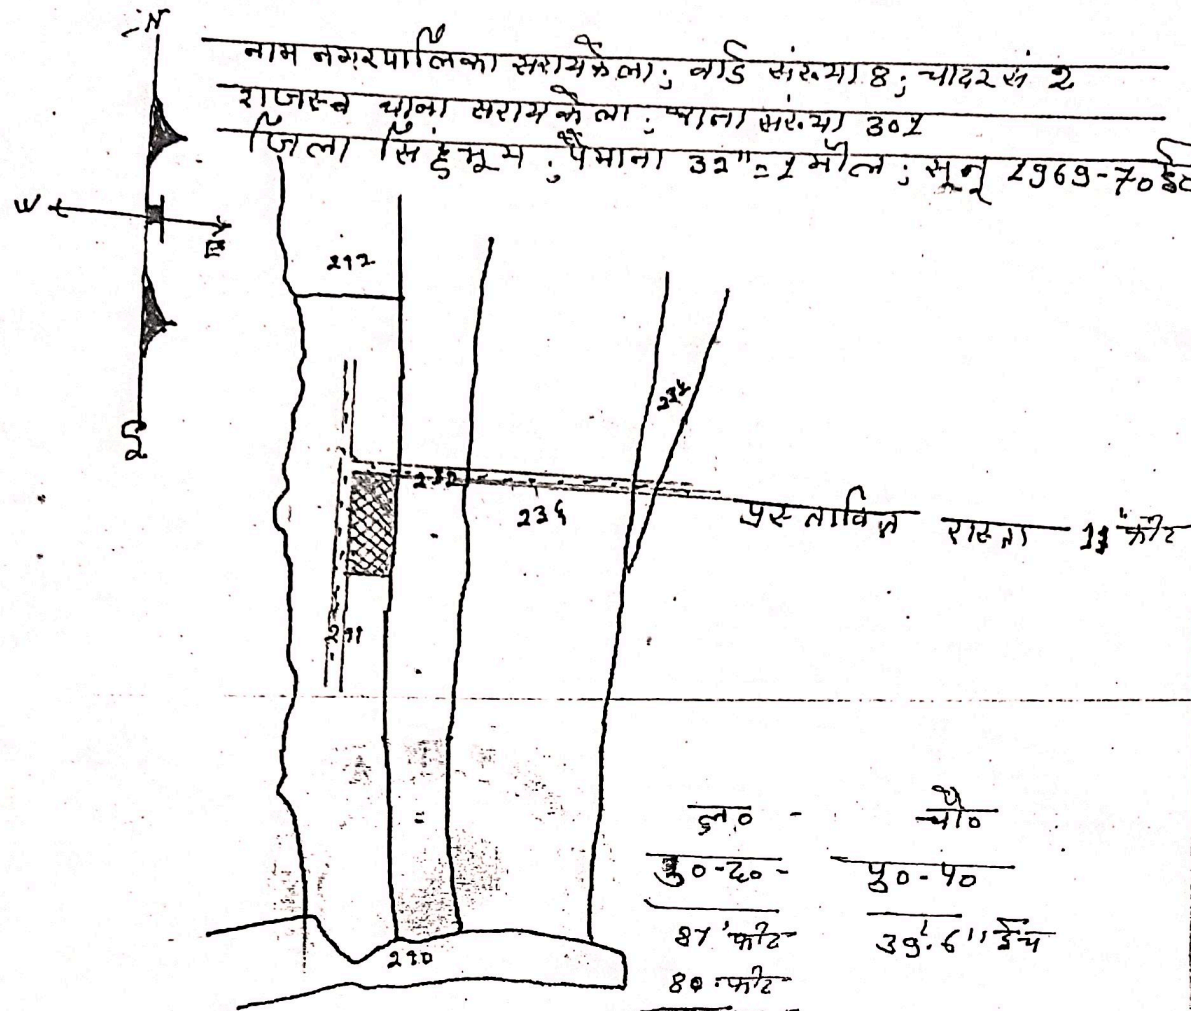 N
नाम नगरपालिका सरायकेला; वार्ड संख्या 8; चादर सं 2
राजस्व थाना सरायकेला; थाना संख्या 301
जिला सिंहभूम; पैमाना 32"=1 मील; सन् 1969-70 ई०
W
E
S
292
232
235
प्रस्तावित रास्ता फीट
291
290
ल० - चौ०
उ०-द०- पु०-प०
87' फीट 39'.6" इंच
80 फीट